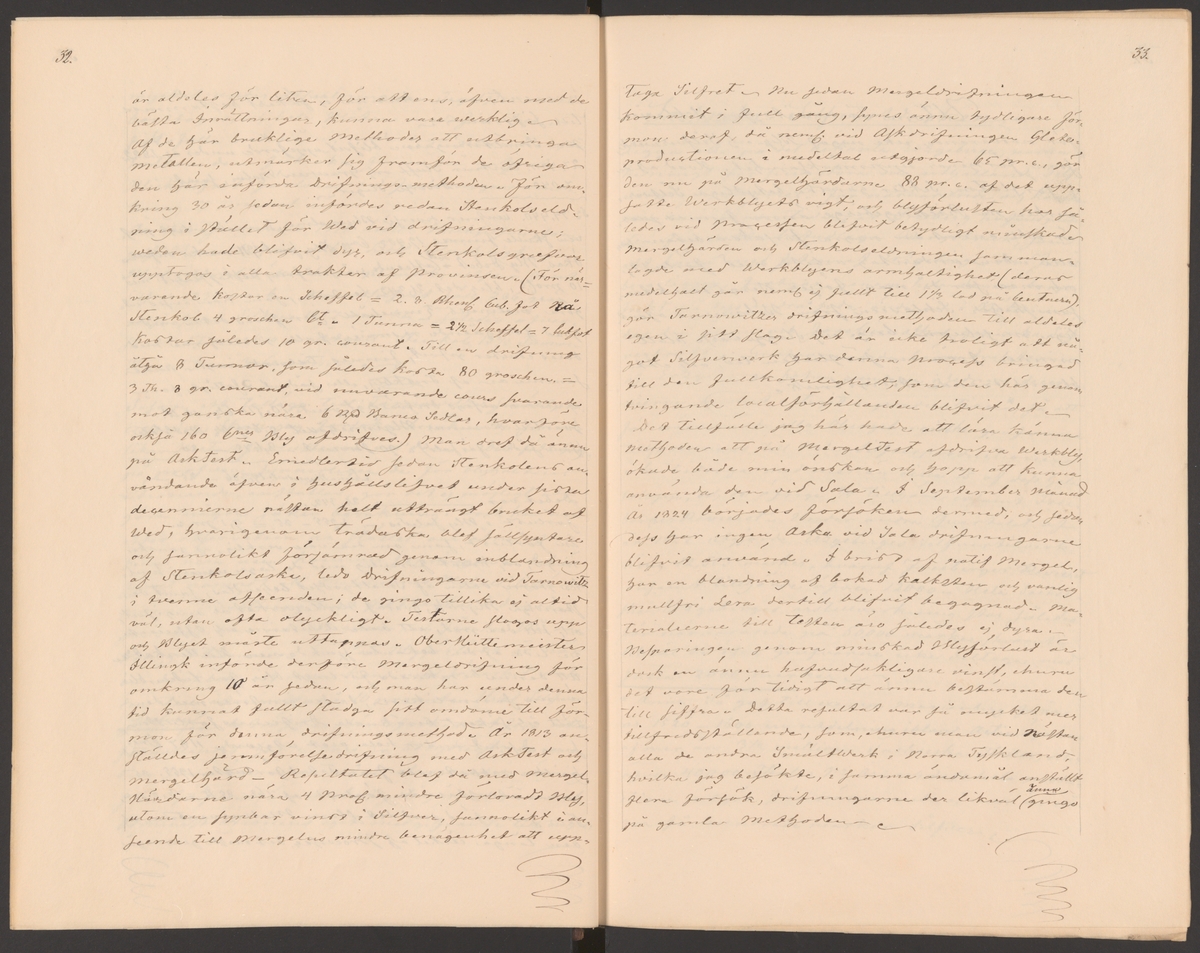 32.
är aldeles för liten, för att ens, äfven med de
bästa Inrättningar, kunna vara werklig.
Af de här brukliga Methoder att utbringa
metallen, utmärker sig framför de öfriga
den här införda Drifnings-methoden. För om-
kring 30 år sedan infördes redan Stenkolseld-
ning i stället för Wed vid drifningarne;
weden hade blifvit dyr, och Stenkolsgrufvor
upptogos i alla trakter af Provinsen. (För när-
varande kostar en Scheffel = 2. 3 Rhenl. Cub. fot
Stenkol 4 groschen Ct. 1 Tunna = 2½ Scheffel = 7 Cubfot
kostar således 10 gr. courant. Till en drifning
åtgå 8 Tunnor, som således kosta 80 groschen. =
3 Th. 8 gr. courant, vid nuvarande cours svarande
mot ganska nära 6 Rd Banco Sedlar, hvarföre
också 160 Ctner Bly afdrifves.) Man dref då ännu
på AskTest. Emedlertid sedan Stenkolens an-
vändande äfven i hushållslefvet under sista
decennierne nästan helt utträngt bruket af
Wed, hvarigenom träaska blef sällsyntare
och sannolikt försämrad genom inblandning
af Stenkolsaska, ledo Drifningarne vid Tarnowitz
i tvenne afseenden; de gingo tillika ej altid
väl, utan ofta olyckligt. Testarne stego upp
och Blyet måste uttappas. OberHüttemeister
Illingk införde derföre Mergeldrifning för
omkring 10 år sedan, och man har under denna
tid kunnat fullt stadga sitt omdöme till för-
mon för denna drifningsmethod. År 1813 an-
stäldes jemnförelsedrifning med AskTest och
Mergelhärd — Resultatet blef då med Mergel-
Härdarne nära 4 Proc mindre förloradt Bly,
utom en synbar vinst i Silfver, sannolikt i an-
seende till Mergelns mindre benägenhet att upp-
33.
taga Silfret. Nu sedan Mergeldrifningen
kommit i full gång, synes ännu tydligare för-
mon deraf, då neml vid Askdrifningen Glete-
productionen i medeltal utgjorde 65 pr. c., gör
den nu på Mergelhärdarne 88 pr. c. af det upp-
satte Werkblyets vigt, och blyförlusten har så-
ledes vid Processen blifvit betydligt minskad.
Mergelhärden och Stenkolseldningen samman-
lagde med Werkblyens armhaltighet (deras
medelhalt går neml ej fullt till 1½ lod på Centnern),
gör Tarnowitzer drifningsmethoden till aldeles
egen i sitt slag. Det är icke troligt att nå-
got Silfververk har denna Process bringad
till den fullkomlighet, som den här genom
tvingande localförhållanden blifvit det.
Det tillfälle jag här hade att lära känna
methoden att på MergelTest afdrifva Werkbly,
ökade både min önskan och hopp att kunna
använda den vid Sala. I September Månad
År 1824 börjades försöken dermed, och sedan
dess har ingen Aska vid Sala drifningarne
blifvit använd. I brist af natif Mergel,
har en blandning af bokad kalksten och vanlig
mullfri Lera dertill blifvit begagnad. Ma-
terialierne till testen äro således ej dyra.
Besparingen genom minskad Blyförlust är
dock en ännu hufvudsakligare vinst, ehuru
det vore för tidigt att ännu bestämma den
till siffra. Detta resultat var så mycket mer
tillfredsställande, som, ehuru man vid nästan
alla de andra SmältWerk i Norra Tyskland,
hvilka jag besökte, i samma ändamål anstält
flera försök, drifningarne der likväl ännu gingo
på gamla Methoden.